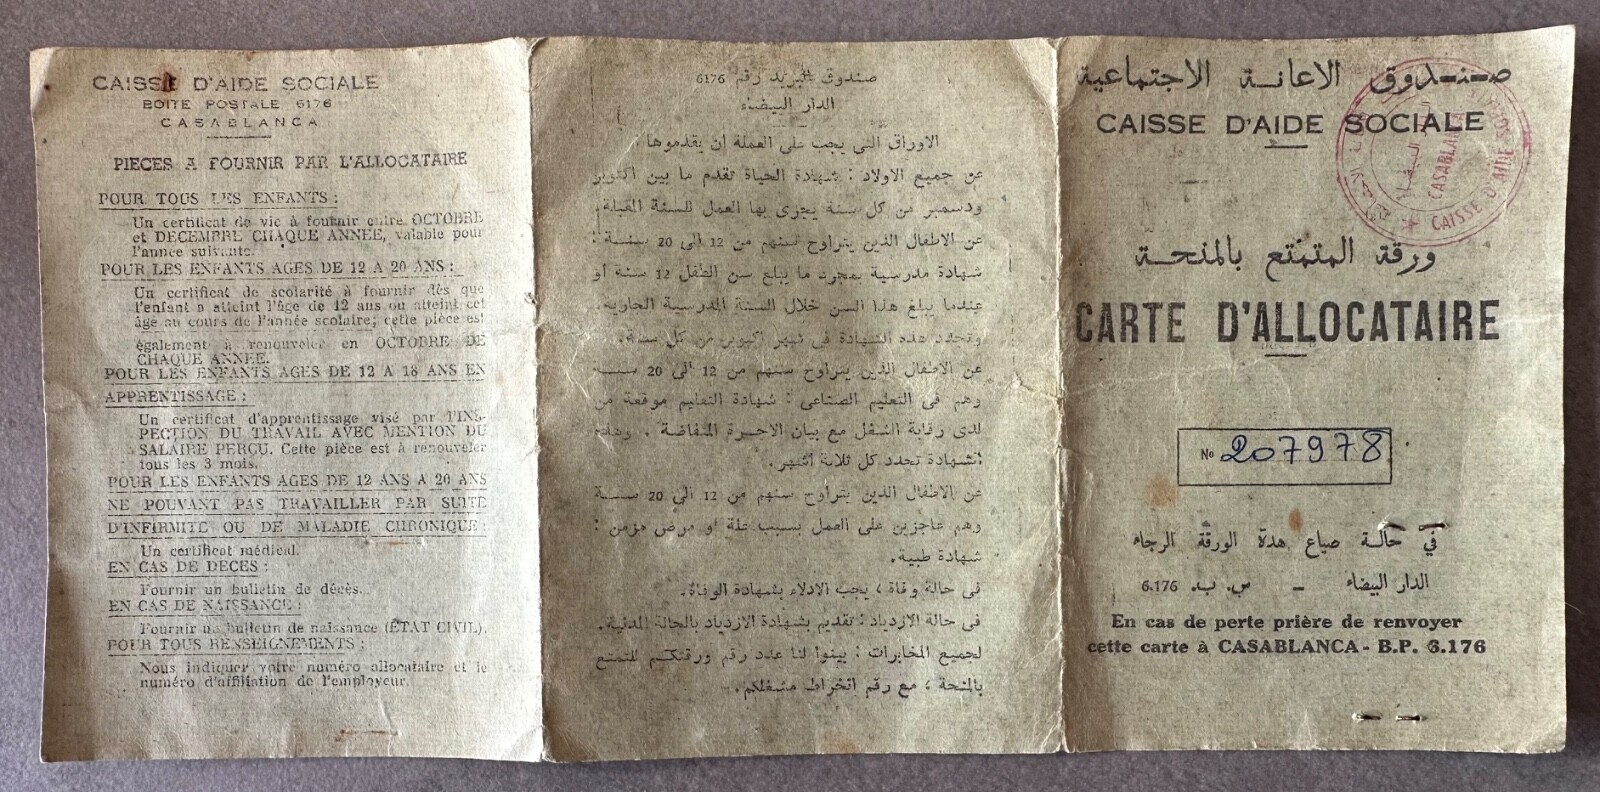 CAISSE D'AIDE SOCIALE
BOITE POSTALE 6176
CASABLANCA
PIECES A FOURNIR PAR L'ALLOCATAIRE
POUR TOUS LES ENFANTS :
Un certificat de vie à fournir entre OCTOBRE
et DECEMBRE CHAQUE ANNEE, valable pour
l'année suivante.
POUR LES ENFANTS AGES DE 12 A 20 ANS :
Un certificat de scolarité à fournir dès que
l'enfant a atteint l'âge de 12 ans ou atteint cet
âge au cours de l'année scolaire; cette pièce est
également à renouveler en OCTOBRE DE
CHAQUE ANNEE.
POUR LES ENFANTS AGES DE 12 A 18 ANS EN
APPRENTISSAGE :
Un certificat d'apprentissage visé par l'INS-
PECTION DU TRAVAIL AVEC MENTION DU
SALAIRE PERÇU. Cette pièce est à renouveler
tous les 3 mois.
POUR LES ENFANTS AGES DE 12 ANS A 20 ANS
NE POUVANT PAS TRAVAILLER PAR SUITE
D'INFIRMITE OU DE MALADIE CHRONIQUE :
Un certificat médical.
EN CAS DE DECES :
Fournir un bulletin de décès.
EN CAS DE NAISSANCE :
Fournir un bulletin de naissance (ÉTAT CIVIL).
POUR TOUS RENSEIGNEMENTS :
Nous indiquer votre numéro allocataire et le
numéro d'affiliation de l'employeur.
صندوق البريد رقم 6176
الدار البيضاء
الاوراق التي يجب على العملة ان يقدموها .
عن جميع الاولاد : شهادة الحياة تقدم ما بين اكتوبر
ودسمبر من كل سنة يجرى بها العمل للسنة القبلة.
عن الاطفال الذين يتراوح سنهم من 12 الى 20 سنة :
شهادة مدرسية بمجرد ما يبلغ سن الطفل 12 سنة أو
عندما يبلغ هذا السن خلال السنة المدرسية الجارية.
وتجدد هذه الشهادة فى شهر اكتوبر من كل سنة.
عن الاطفال الذين يتراوح سنهم من 12 الى 20 سنة
وهم فى التعليم الصناعى : شهادة التعليم موقعة من
لدى رقابة الشغل مع بيان الاجرة المتقاضة . وهذه
الشهادة تجدد كل ثلاثة اشهر.
عن الاطفال الذين يتراوح سنهم من 12 الى 20 سنة
وهم عاجزين على العمل بسبب علة او مرض مزمن :
شهادة طبية.
فى حالة وفاة ، يجب الادلاء بشهادة الوفاة.
فى حالة الازدياد : تقديم شهادة الازدياد بالحالة المدنية.
لجميع المخابرات : بينوا لنا عدد رقم ورقتكم للتمتع
بالمنحة ، مع رقم انخراط مشغلكم.
صندوق الاعانة الاجتماعية
CAISSE D'AIDE SOCIALE
CASABLANCA
CAISSE D'AIDE SOCIALE
ورقة المتمتع بالمنحة
CARTE D'ALLOCATAIRE
No 207978
في حالة ضياع هذة الورقة الرجاء
الدار البيضاء – ص. ب. 6.176
En cas de perte prière de renvoyer
cette carte à CASABLANCA - B.P. 6.176